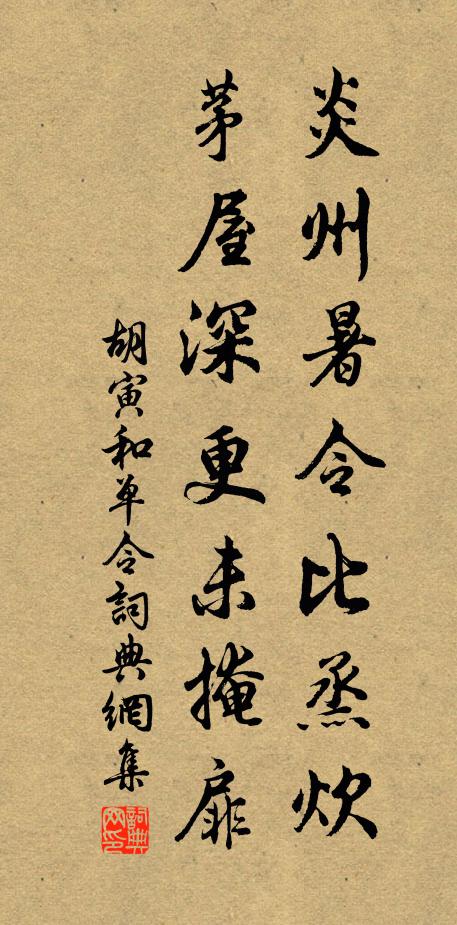 炎州暑令比蒸炊
茅屋深更未掩扉
胡寅和单令詞典網集
詞典网印